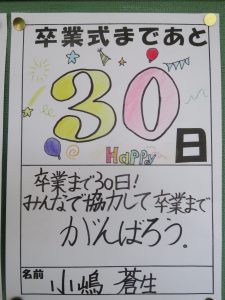 卒業式まであと
30
Happy
日
卒業まで30日!
みんなで協力して卒業まで
がんばろう。
名前
小嶋 蒼生